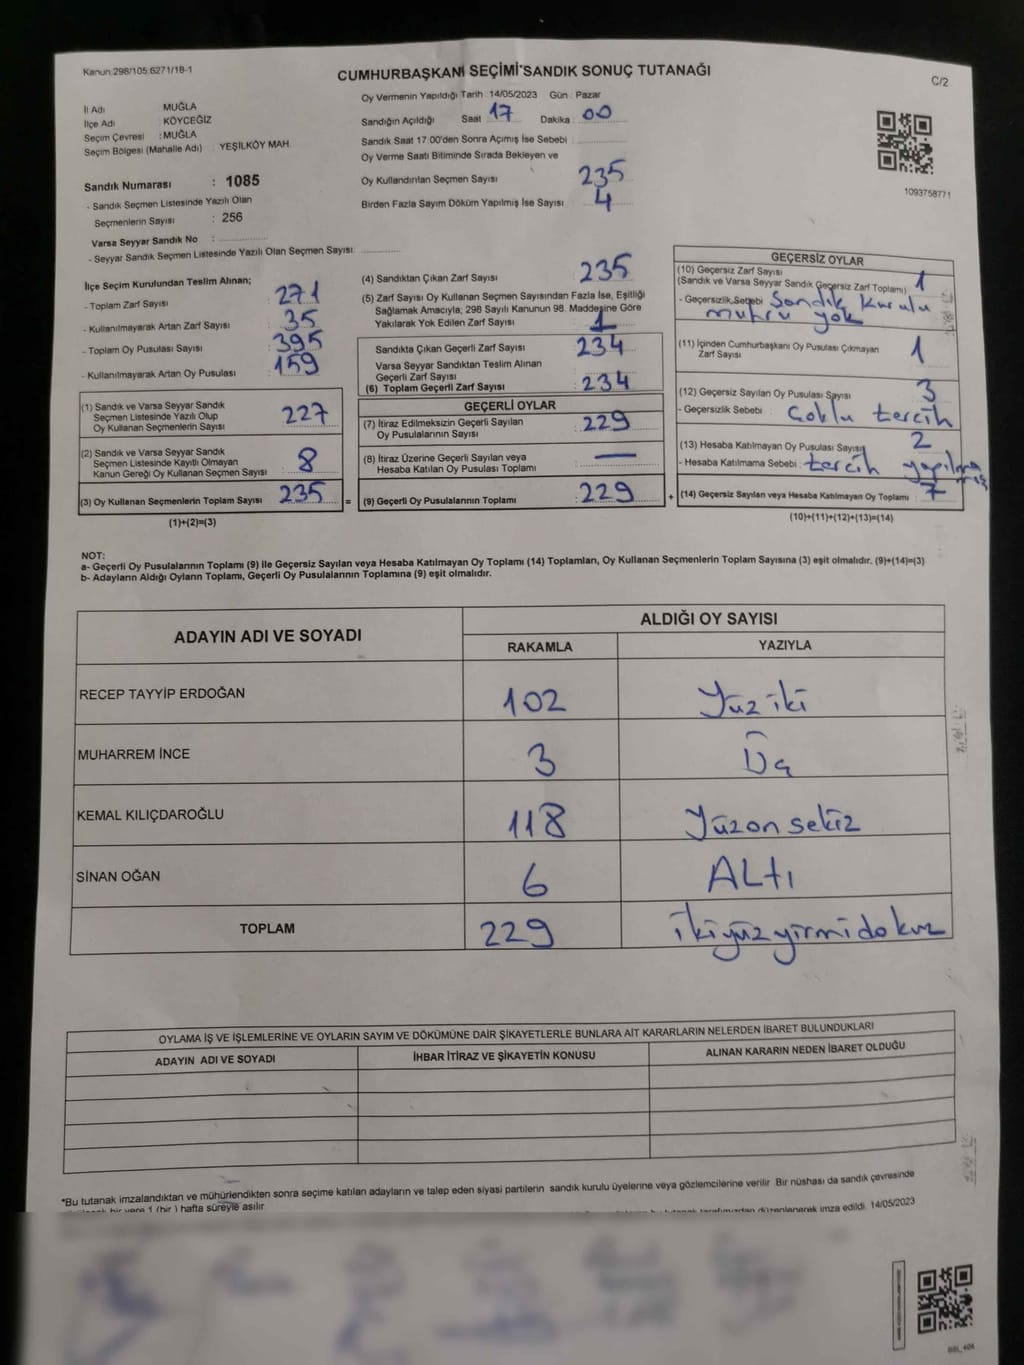 Kanun:298/105:6271/18-1
CUMHURBAŞKANI SEÇİMİ SANDIK SONUÇ TUTANAĞI
C/2
Oy Vermenin Yapıldığı Tarih : 14/05/2023 Gün : Pazar
İl Adı MUĞLA
İlçe Adı KÖYCEĞİZ
Seçim Çevresi : MUĞLA
Seçim Bölgesi (Mahalle Adı) : YEŞİLKÖY MAH.
Sandığın Açıldığı Saat : 17 Dakika : 00
Sandık Saat 17:00'den Sonra Açımış İse Sebebi :
Oy Verme Saati Bitiminde Sırada Bekleyen ve
Oy Kullandırılan Seçmen Sayısı 235
Birden Fazla Sayım Döküm Yapılmış İse Sayısı 4
1093758771
Sandık Numarası : 1085
- Sandık Seçmen Listesinde Yazılı Olan
Seçmenlerin Sayısı : 256
Varsa Seyyar Sandık No :
- Seyyar Sandık Seçmen Listesinde Yazılı Olan Seçmen Sayısı :
İlçe Seçim Kurulundan Teslim Alınan;
- Toplam Zarf Sayısı : 271
- Kullanılmayarak Artan Zarf Sayısı : 35
- Toplam Oy Pusulası Sayısı : 395
- Kullanılmayarak Artan Oy Pusulası : 159
(1) Sandık ve Varsa Seyyar Sandık
Seçmen Listesinde Yazılı Olup
Oy Kullanan Seçmenlerin Sayısı : 227
(2) Sandık ve Varsa Seyyar Sandık
Seçmen Listesinde Kayıtlı Olmayan
Kanun Gereği Oy Kullanan Seçmen Sayısı : 8
(3) Oy Kullanan Seçmenlerin Toplam Sayısı : 235 =
(1)+(2)=(3)
(4) Sandıktan Çıkan Zarf Sayısı : 235
(5) Zarf Sayısı Oy Kullanan Seçmen Sayısından Fazla İse, Eşitliği
Sağlamak Amacıyla; 298 Sayılı Kanunun 98. Maddesine Göre
Yakılarak Yok Edilen Zarf Sayısı : 1
Sandıkta Çıkan Geçerli Zarf Sayısı : 234
Varsa Seyyar Sandıktan Teslim Alınan
Geçerli Zarf Sayısı :
(6) Toplam Geçerli Zarf Sayısı : 234
GEÇERLİ OYLAR
(7) İtiraz Edilmeksizin Geçerli Sayılan
Oy Pusulalarının Sayısı : 229
(8) İtiraz Üzerine Geçerli Sayılan veya
Hesaba Katılan Oy Pusulası Toplamı : —
(9) Geçerli Oy Pusulalarının Toplamı : 229 +
GEÇERSİZ OYLAR
(10) Geçersiz Zarf Sayısı
(Sandık ve Varsa Seyyar Sandık Geçersiz Zarf Toplamı) : 1
- Geçersizlik Sebebi : Sandık Kurulu
muhru yok
(11) İçinden Cumhurbaşkanı Oy Pusulası Çıkmayan
Zarf Sayısı 1
(12) Geçersiz Sayılan Oy Pusulası Sayısı 3
- Geçersizlik Sebebi : Çoklu tercih
(13) Hesaba Katılmayan Oy Pusulası Sayısı 2
- Hesaba Katılmama Sebebi : tercih
(14) Geçersiz Sayılan veya Hesaba Katılmayan Oy Toplamı : 7
(10)+(11)+(12)+(13)=(14)
NOT:
a- Geçerli Oy Pusulalarının Toplamı (9) ile Geçersiz Sayılan veya Hesaba Katılmayan Oy Toplamı (14) Toplamları, Oy Kullanan Seçmenlerin Toplam Sayısına (3) eşit olmalıdır. (9)+(14)=(3)
b- Adayların Aldığı Oyların Toplamı, Geçerli Oy Pusulalarının Toplamına (9) eşit olmalıdır.
ADAYIN ADI VE SOYADI
ALDIĞI OY SAYISI
RAKAMLA YAZIYLA
RECEP TAYYİP ERDOĞAN 102 Yüz iki
MUHARREM İNCE 3 Üç
KEMAL KILIÇDAROĞLU 118 Yüzon sekiz
SİNAN OĞAN 6 ALtı
TOPLAM 229 ikiyüzyirmidokuz
OYLAMA İŞ VE İŞLEMLERİNE VE OYLARIN SAYIM VE DÖKÜMÜNE DAİR ŞİKAYETLERLE BUNLARA AİT KARARLARIN NELERDEN İBARET BULUNDUKLARI
ADAYIN ADI VE SOYADI İHBAR İTİRAZ VE ŞİKAYETİN KONUSU ALINAN KARARIN NEDEN İBARET OLDUĞU
*Bu tutanak imzalandıktan ve mühürlendikten sonra seçime katılan adayların ve talep eden siyasi partilerin sandık kurulu üyelerine veya gözlemcilerine verilir. Bir nüshası da sandık çevresinde
bir yere 1 (bir ) hafta süreyle asılır
düzenlenerek imza edildi. 14/05/2023